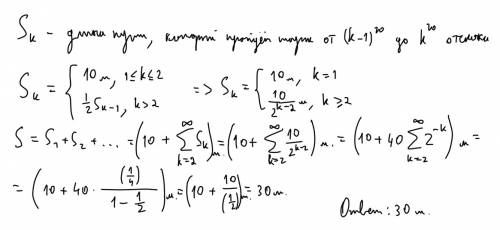 S_k - длина пути, который пройдёт шарик от (k-1)^го до k^го отскока
S_k = { 10 м, 1≤k≤2; 1/2 S_{k-1}, k>2 => S_k = { 10 м, k=1; 10/2^{k-2} м, k≥2
S = S_1 + S_2 + ... = (10 + ∑_{k=2}^∞ S_k) м = (10 + ∑_{k=2}^∞ 10/2^{k-2}) м. = (10 + 40 ∑_{k=2}^∞ 2^{-k}) м =
= (10 + 40 · (1/4)/(1 - 1/2)) м. = (10 + 10/(1/2)) м. = 30 м.
Ответ: 30 м.